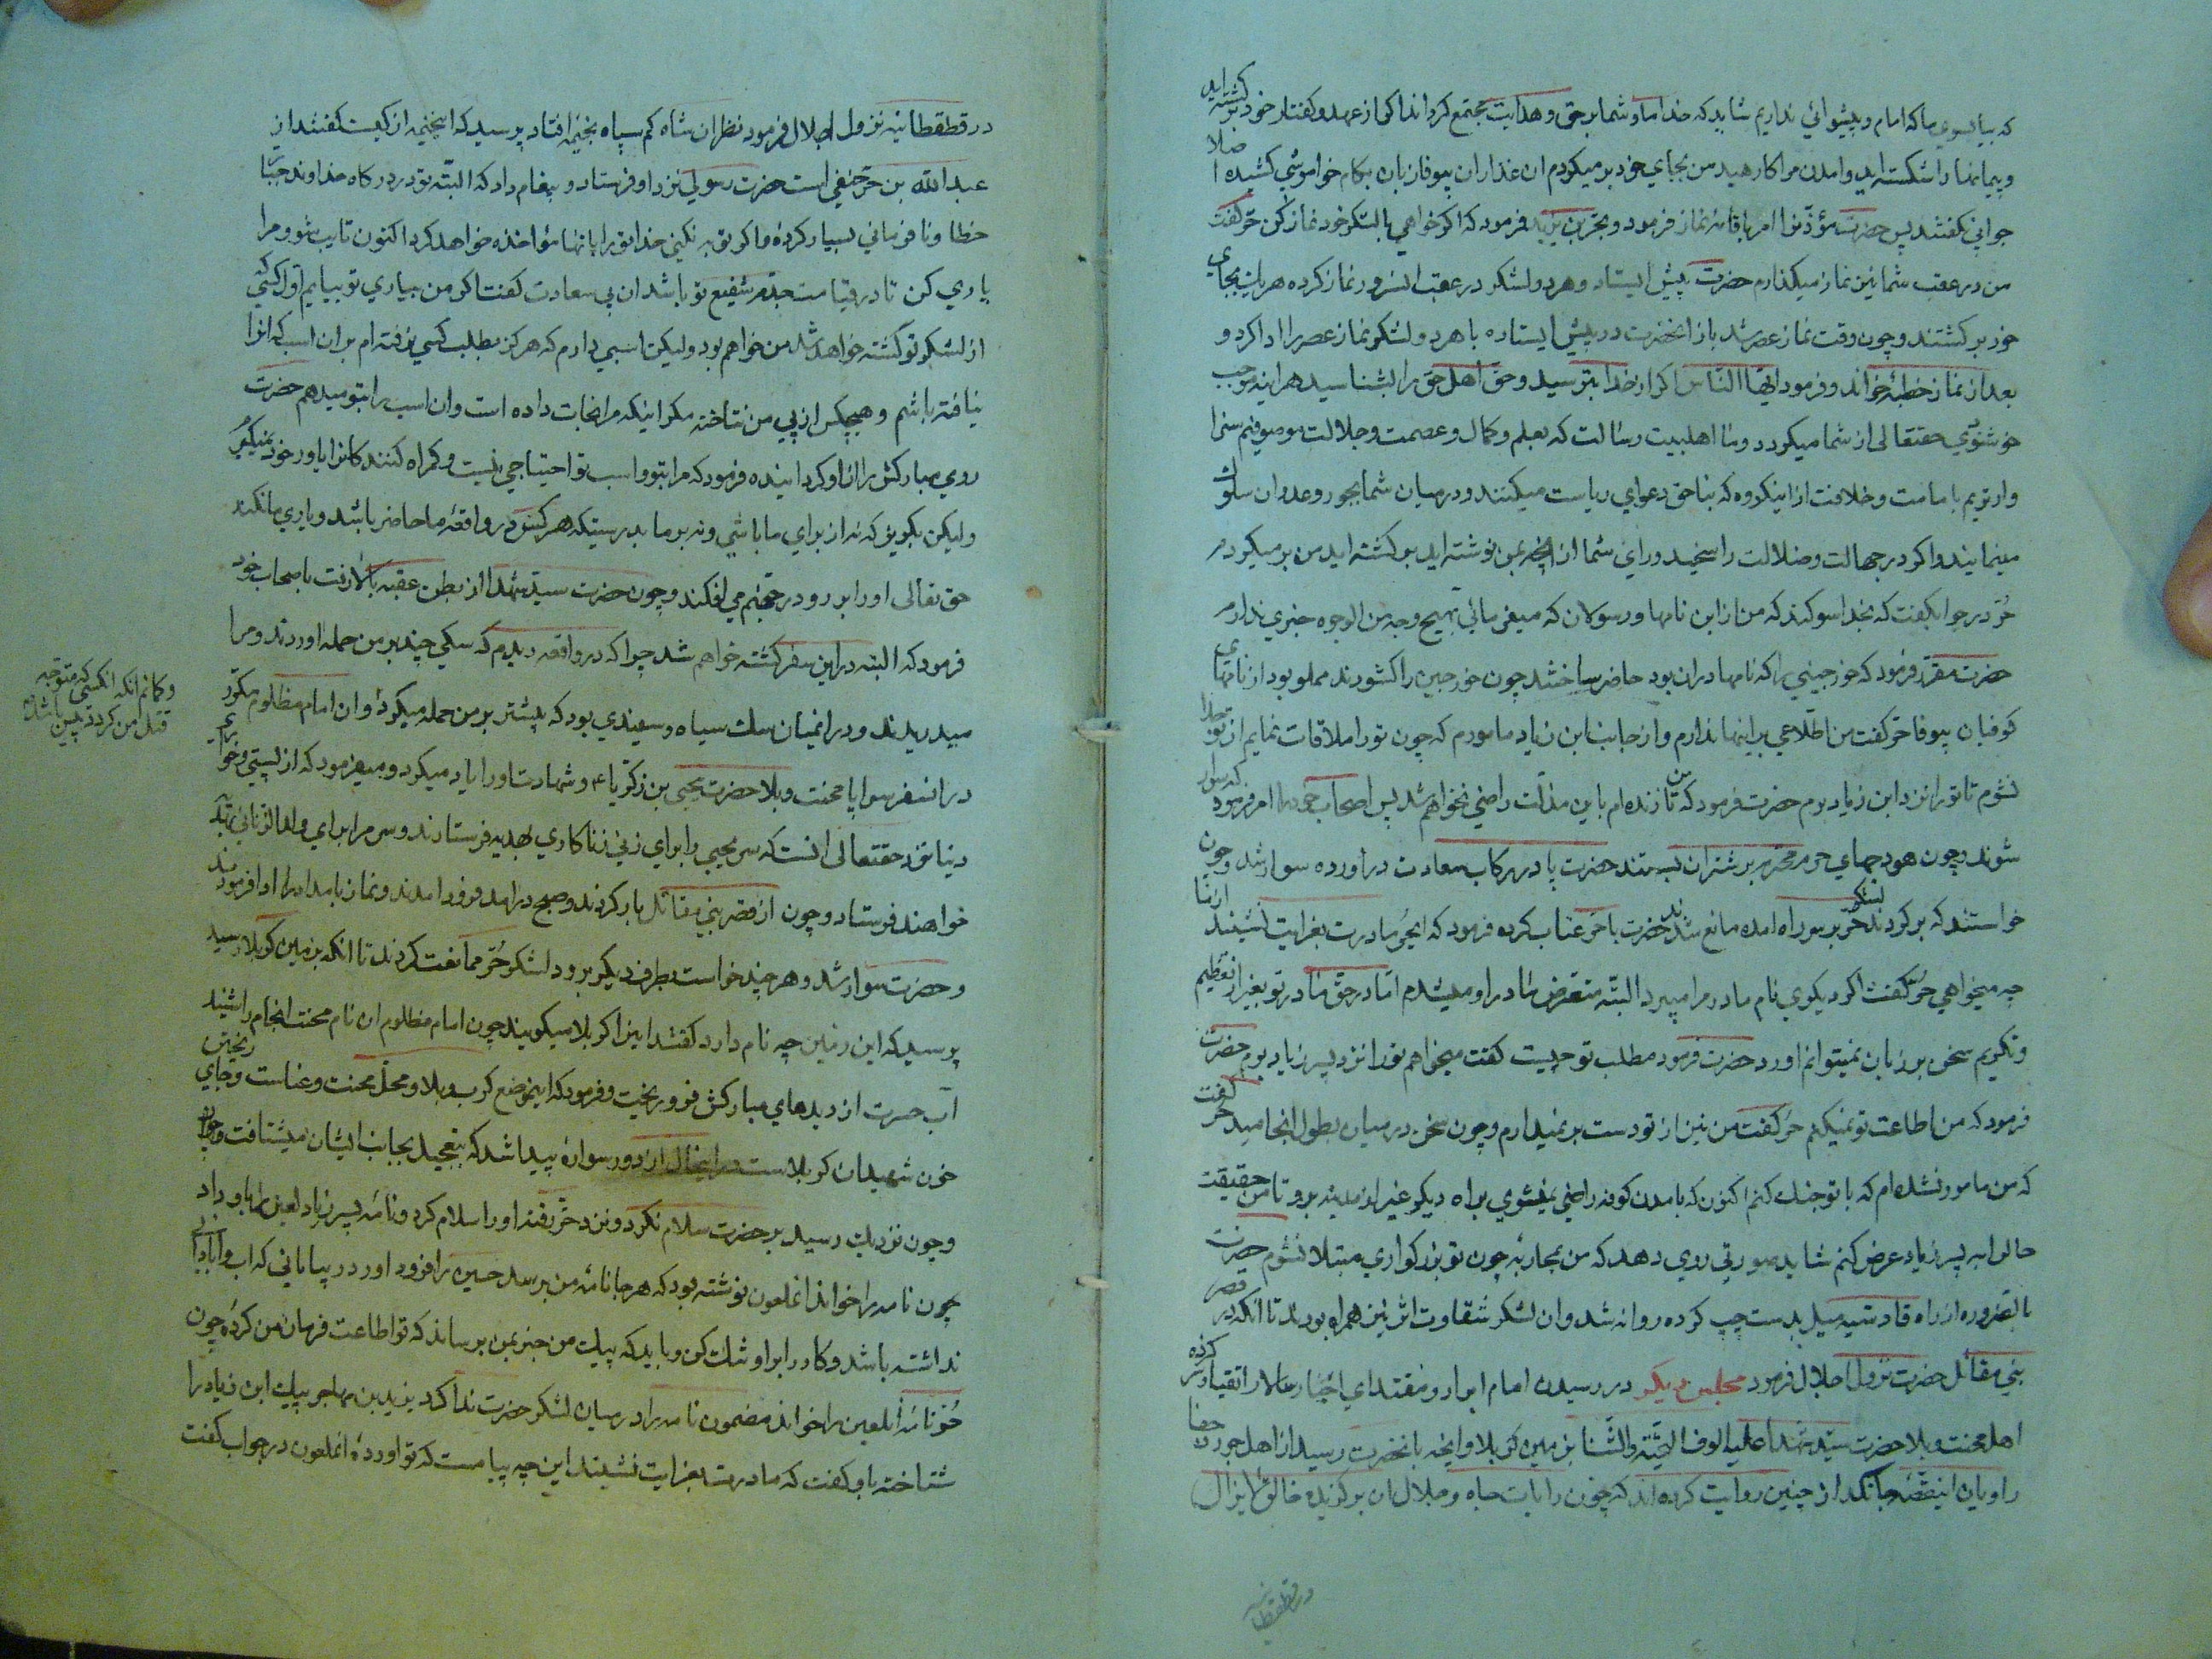 که بیا بسوی ما که امام و پیشوائی نداریم شاید که خدا ما و شما را بر حق و هدایت مجتمع گرداند اگر از عهد و گفتار خود برگشته اید
و پیمانها را شکسته اید و آمدن مرا کارهید من بجای خود بر میگردم ان غداران بیوفا زبان بکام خواموشی کشیده اصلا
جوابی نگفتند پس حضرت مؤذن را امر باقامه نماز فرمود و بحر بن یزید فرمود که اگر خواهی با لشکر خود نماز کن حر گفت
من در عقب شما نیز نماز میگذارم حضرت پیش ایستاد و هر دو لشکر در عقب انسرور نماز کرده هر یک بجای
خود برگشتند و چون وقت نماز عصر شد باز انحضرت در پیش ایستاده با هر دو لشکر نماز عصر را ادا کرد و
بعد از نماز خطبه خواند و فرمود ایها الناس اگر از خدا بترسید و حق اهل حق را بشناسید هر اینه موجب
خوشنودی حقتعالی از شما میگردد و ما اهلبیت رسالت که بعلم و کمال و عصمت و جلالت موصوفیم سزا
وار تریم بامامت و خلافت از اینگروه که بناحق دعوای ریاست میکنند و در میان شما بجور و عدوان سلوک
مینمایند و اگر در جهالت و ضلالت راسخید و رای شما از انچه بمن نوشته اید برگشته اید من بر میگردم
حر در جواب گفت که بخدا سوگند که من از این نامها و رسولان که میفرمائی بهیچ وجه من الوجوه خبری ندارم
حضرت مقرر فرمود که خورجینی را که نامها در ان بود حاضر ساختند چون خورجین را گشودند مملو بود از نامهای
کوفیان بیوفا حر گفت من اطلاعی بر اینها ندارم و از جانب ابن زیاد مامورم که چون تو را ملاقات نمایم از تو جدا
نشوم تا تو را نزد ابن زیاد برم حضرت فرمود که تا من زنده ام باین مذلت راضی نخواهم شد پس اصحاب خود را امر فرمود که سوار
شوند و چون هودجهای حرم محترم بر شتران بستند حضرت پا در رکاب سعادت در آورده سوار شد و چون
خواستند که برگردند لشکر حر بر سر راه امده مانع شدند حضرت با حر عتاب کرده فرمود که ایحر مادرت بعزایت نشیند از ما
چه میخواهی حر گفت اگر دیگری نام مادر مرا میبرد البته متعرض مادر او میشدم اما در حق مادر تو بغیر از تعظیم
و تکریم سخن بر زبان نمیتوانم اورد حضرت فرمود مطلب تو چیست گفت میخواهم تو را نزد پسر زیاد برم حضرت
فرمود که من اطاعت تو نمیکنم حر گفت من نیز از تو دست بر نمیدارم و چون سخن در میان بطول انجامید حر گفت
که من مامور نشده ام که با تو جنک کنم اکنون که بامدن کوفه راضی نمیشوی براه دیگر غیر از مدینه برو تا من حقیقت
حال را به پسر زیاد عرض کنم شاید صورتی روی دهد که من بمحاربه چون تو بزرگواری مبتلا نشوم حضرت
بالضروره از راه قادسیه میل بدست چپ کرده روانه شد و ان لشکر شقاوت اثر نیز همراه بودند تا انکه در قصر
بنی مقاتل حضرت نزول اجلال فرمود مجلس دیگر در رسیدن امام ابرار و مقتدای اخیار سالار اتقیا و سر کرده
اهل محنت و بلا حضرت سید شهدا علیه الوف التحیة و الثنا بزمین کربلا و انچه بانحضرت رسید از اهل جور و جفا
راویان اینقصه جانگداز چنین روایت کرده اند که چون رایات جاه و جلال ان برگزیده خالق لایزال
در قطقطانیه
در قطقطانیه نزول اجلال فرمود نظر ان شاه کم سپاه بخیمه افتاد پرسید که اینخیمه از کیست گفتند از
عبد الله بن حر جعفی است حضرت رسولی نزد او فرستاد و پیغام داد که البته تو در درگاه خداوند جبار
خطا و نافرمانی بسیار کرده و اگر توبه نکنی خدا تو را بانها مؤاخذه خواهد کرد اکنون تایب شو و مرا
یاری کن تا در قیامت جدم شفیع تو باشد ان بی سعادت گفت اگر من بیاری تو بیایم اول کسی که
از لشکر تو کشته خواهد شد من خواهم بود و لیکن اسبی دارم که هرگز بطلب کسی نرفته ام بر ان اسب که انرا
نیافته باشم و هیچکس از پی من نتاخته مگر اینکه مرا نجات داده است و ان اسب را بتو میدهم حضرت
روی مبارکش را از او گردانیده فرمود که مرا بتو و اسب تو احتیاجی نیست و گمراه کنند کانرا یاور خود نمیگیرم
و لیکن بگریز که نه از برای ما باشی و نه بر ما بدرستیکه هر کس در واقعه ما حاضر باشد و یاری ما نکند
حق تعالی او را بر رو در جهنم می افکند و چون حضرت سید شهدا از بطن عقبه بالا رفت باصحاب خود
فرمود که البته در این سفر کشته خواهم شد چرا که در واقعه دیدم که سکی چند بر من حمله اوردند و مرا
میدریدند و در انمیان سک سیاه و سفیدی بود که بیشتر بر من حمله میکرد و ان امام مظلوم مکرر
و گمانم انکه انکسی که متوجه
قتل من گردد پیس باشد
در انسفر سراپا محنت و بلا حضرت یحیی بن زکریا ع و شهادت او را یاد میکرد و میفرمود که از پستی و خواری
دنیا نزد حقتعالی انست که سر یحیی را برای زنی زناکاری بهدیه فرستادند و سر مرا برای ولد الزنائی بهدیه
خواهند فرستاد و چون از قصر بنی مقاتل بار کردند و صبح در امد فرود امدند و نماز بامداد را ادا فرمودند
و حضرت سوار شد و هر چند خواست بطرف دیگر برود لشکر حر ممانعت کردند تا انکه بزمین کربلا رسید
پرسید که این زمین چه نام دارد گفتند اینرا کربلا میگویند چون امام مظلوم ان نام محنت انجام را شنید
آب حسرت از دیدهای مبارکش فرو ریخت و فرمود که اینموضع کرب و بلا و محل محنت و عناست و جای ریختن
خون شهیدان کربلاست در اینحال از دور سوارۀ پیدا شد که بتعجیل بجانب ایشان میشتافت و چون
و چون نزدیک رسید بر حضرت سلام نکرد و نزد حر رفته او را سلام کرد و نامه پسر زیاد لعین را باو داد
چون نامه را خواند انملعون نوشته بود که هر جا نامه من برسد حسین را فرود اور در بیابانی که اب و آبادانی
نداشته باشد و کار را بر او تنک کن و باید که پیک من خبر بمن برساند که تو اطاعت فرمان من کرده چون
حر نامه آنلعین را خواند مضمون نامه را در میان لشکر حضرت ندا کرد یزید بن مهاجر پیک ابن زیاد را
شناخته باو گفت که مادرت بعزایت نشیند این چه پیامست که تو اوردۀ انملعون در جواب گفت